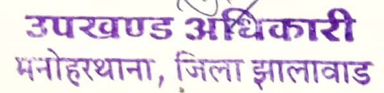 उपखण्ड अधिकारी
मनोहरथाना, जिला झालावाड